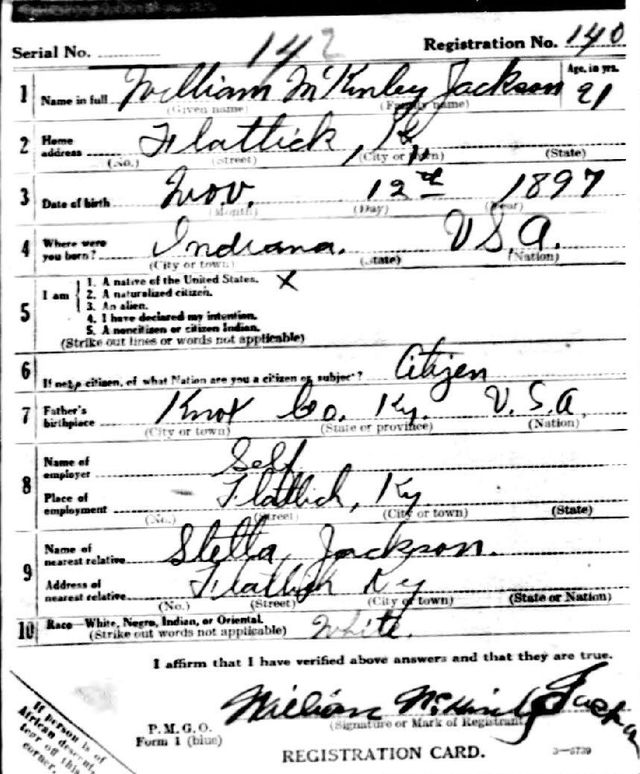 Serial No. 142 Registration No. 140
1 Name in full William McKinley Jackson Age, in yrs. 21
(Given name) (Family name)
2 Home address Flatlick, Ky
(No.) (Street) (City or town) (State)
3 Date of birth Nov. 12th 1897
(Month) (Day) (Year)
4 Where were you born? Indiana. U.S.A.
(City or town) (State) (Nation)
5 I am
1. A native of the United States. X
2. A naturalized citizen.
3. An alien.
4. I have declared my intention.
5. A noncitizen or citizen Indian.
(Strike out lines or words not applicable)
6 If not a citizen, of what Nation are you a citizen or subject? Citizen
7 Father's birthplace Knox Co. Ky. U.S.A.
(City or town) (State or province) (Nation)
8 Name of employer Self
Place of employment Flatlick, Ky
(No.) (Street) (City or town) (State)
9 Name of nearest relative Stella Jackson.
Address of nearest relative Flatlick Ky
(No.) (Street) (City or town) (State or Nation)
10 Race—White, Negro, Indian, or Oriental. White.
(Strike out words not applicable)
I affirm that I have verified above answers and that they are true.
William McKinley Jackson
(Signature or Mark of Registrant)
P.M.G.O.
Form 1 (blue)
REGISTRATION CARD. 3—6739
If person is of
African descent,
tear off this
corner.